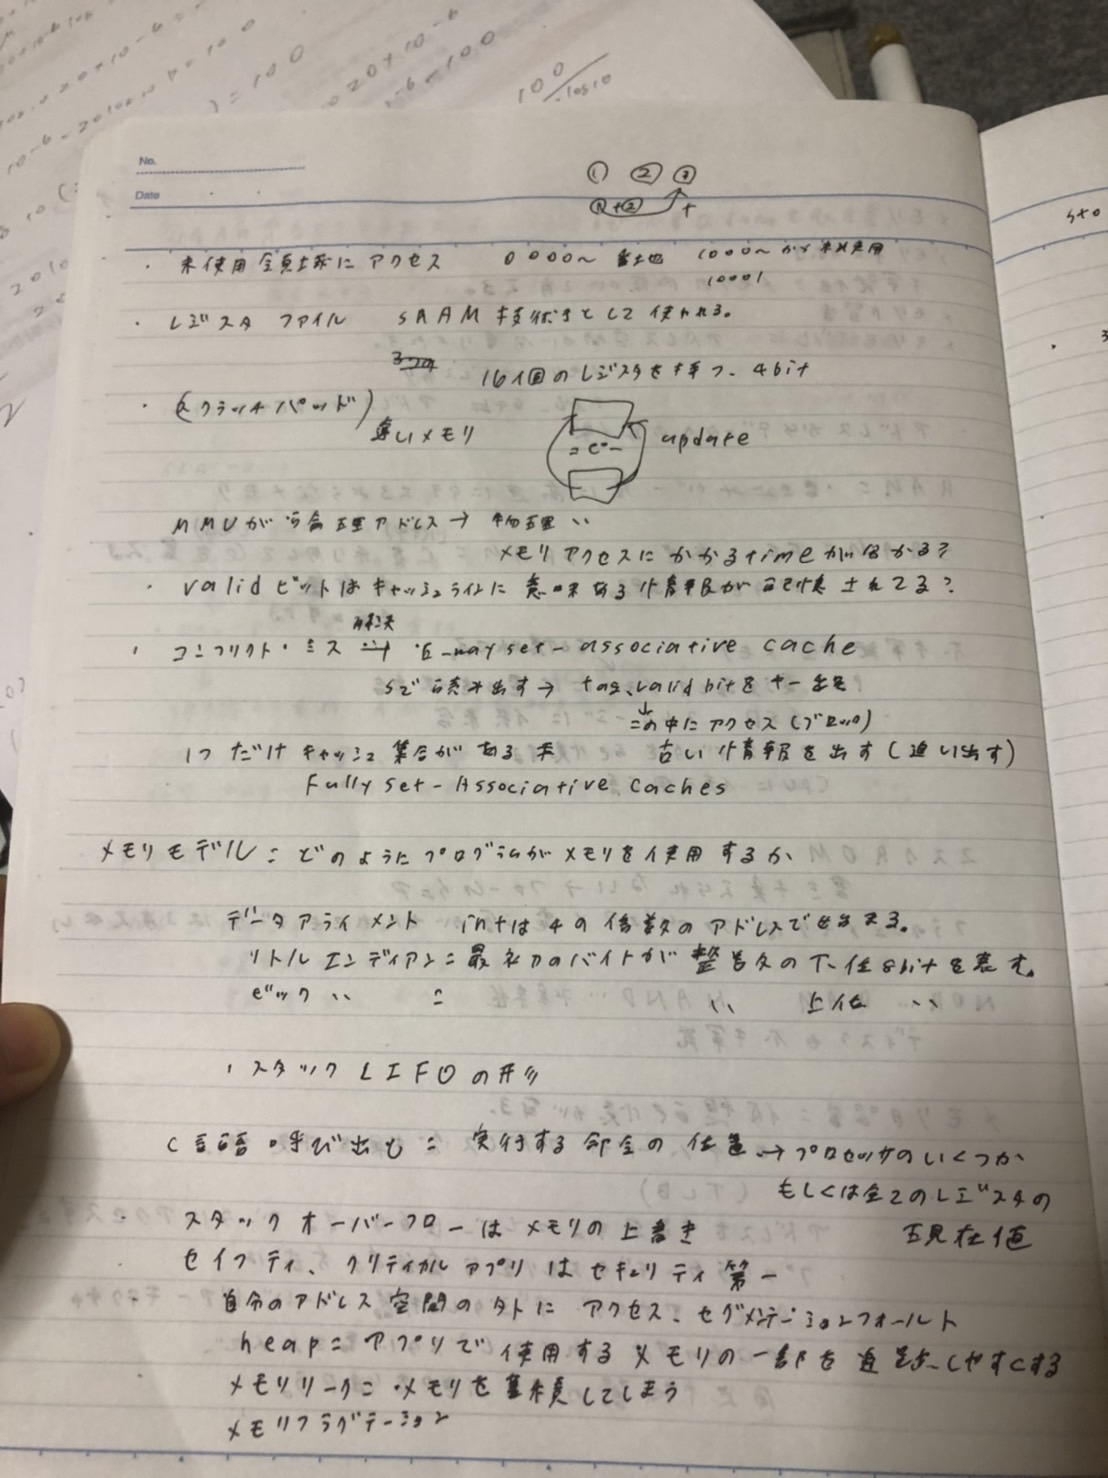 100
) = 100
20×10^-6
-6=100
100/-log10
No.
Date
① ② ③
①+② +
・未使用領域にアクセス 0000〜 番地 1000〜から未使用
10001
・レジスタ ファイル SRAM 技術として使われる。
16個のレジスタを持つ、4bit
・(スクラッチパッド)
速いメモリ コピー update
MMUが論理アドレス→ 物理 〃
メモリアクセスにかかるtimeが分かる?
・validビットはキャッシュラインに意味ある情報が記憶されてる?
解決
・コンフリクト・ミス → E-way set-associative cache
Sで読み出す→ tag、valid bitをキー
↓この中にアクセス(ブロック)
1つだけキャッシュ集合がある 古い情報を出す(追い出す)
Fully set-Associative caches
メモリモデル=どのようにプログラムがメモリを使用するか
データアライメント intは4の倍数のアドレスで
リトルエンディアン=最初のバイトが整数の下位8bitを表す。
ビッグ 〃 = 〃 上位 〃
・スタック LIFOの形
C言語呼び出し= 実行する命令の位置→プロセッサのいくつか
もしくは全てのレジスタの
現在値
スタックオーバーフローはメモリの上書き
セイフティ、クリティカルアプリはセキュリティ第一
自分のアドレス空間の外にアクセス、セグメンテーションフォールト
heap=アプリで使用するメモリの一部を しやすくする
メモリリーク=・メモリを蓄積してしまう
メモリフラグテーション